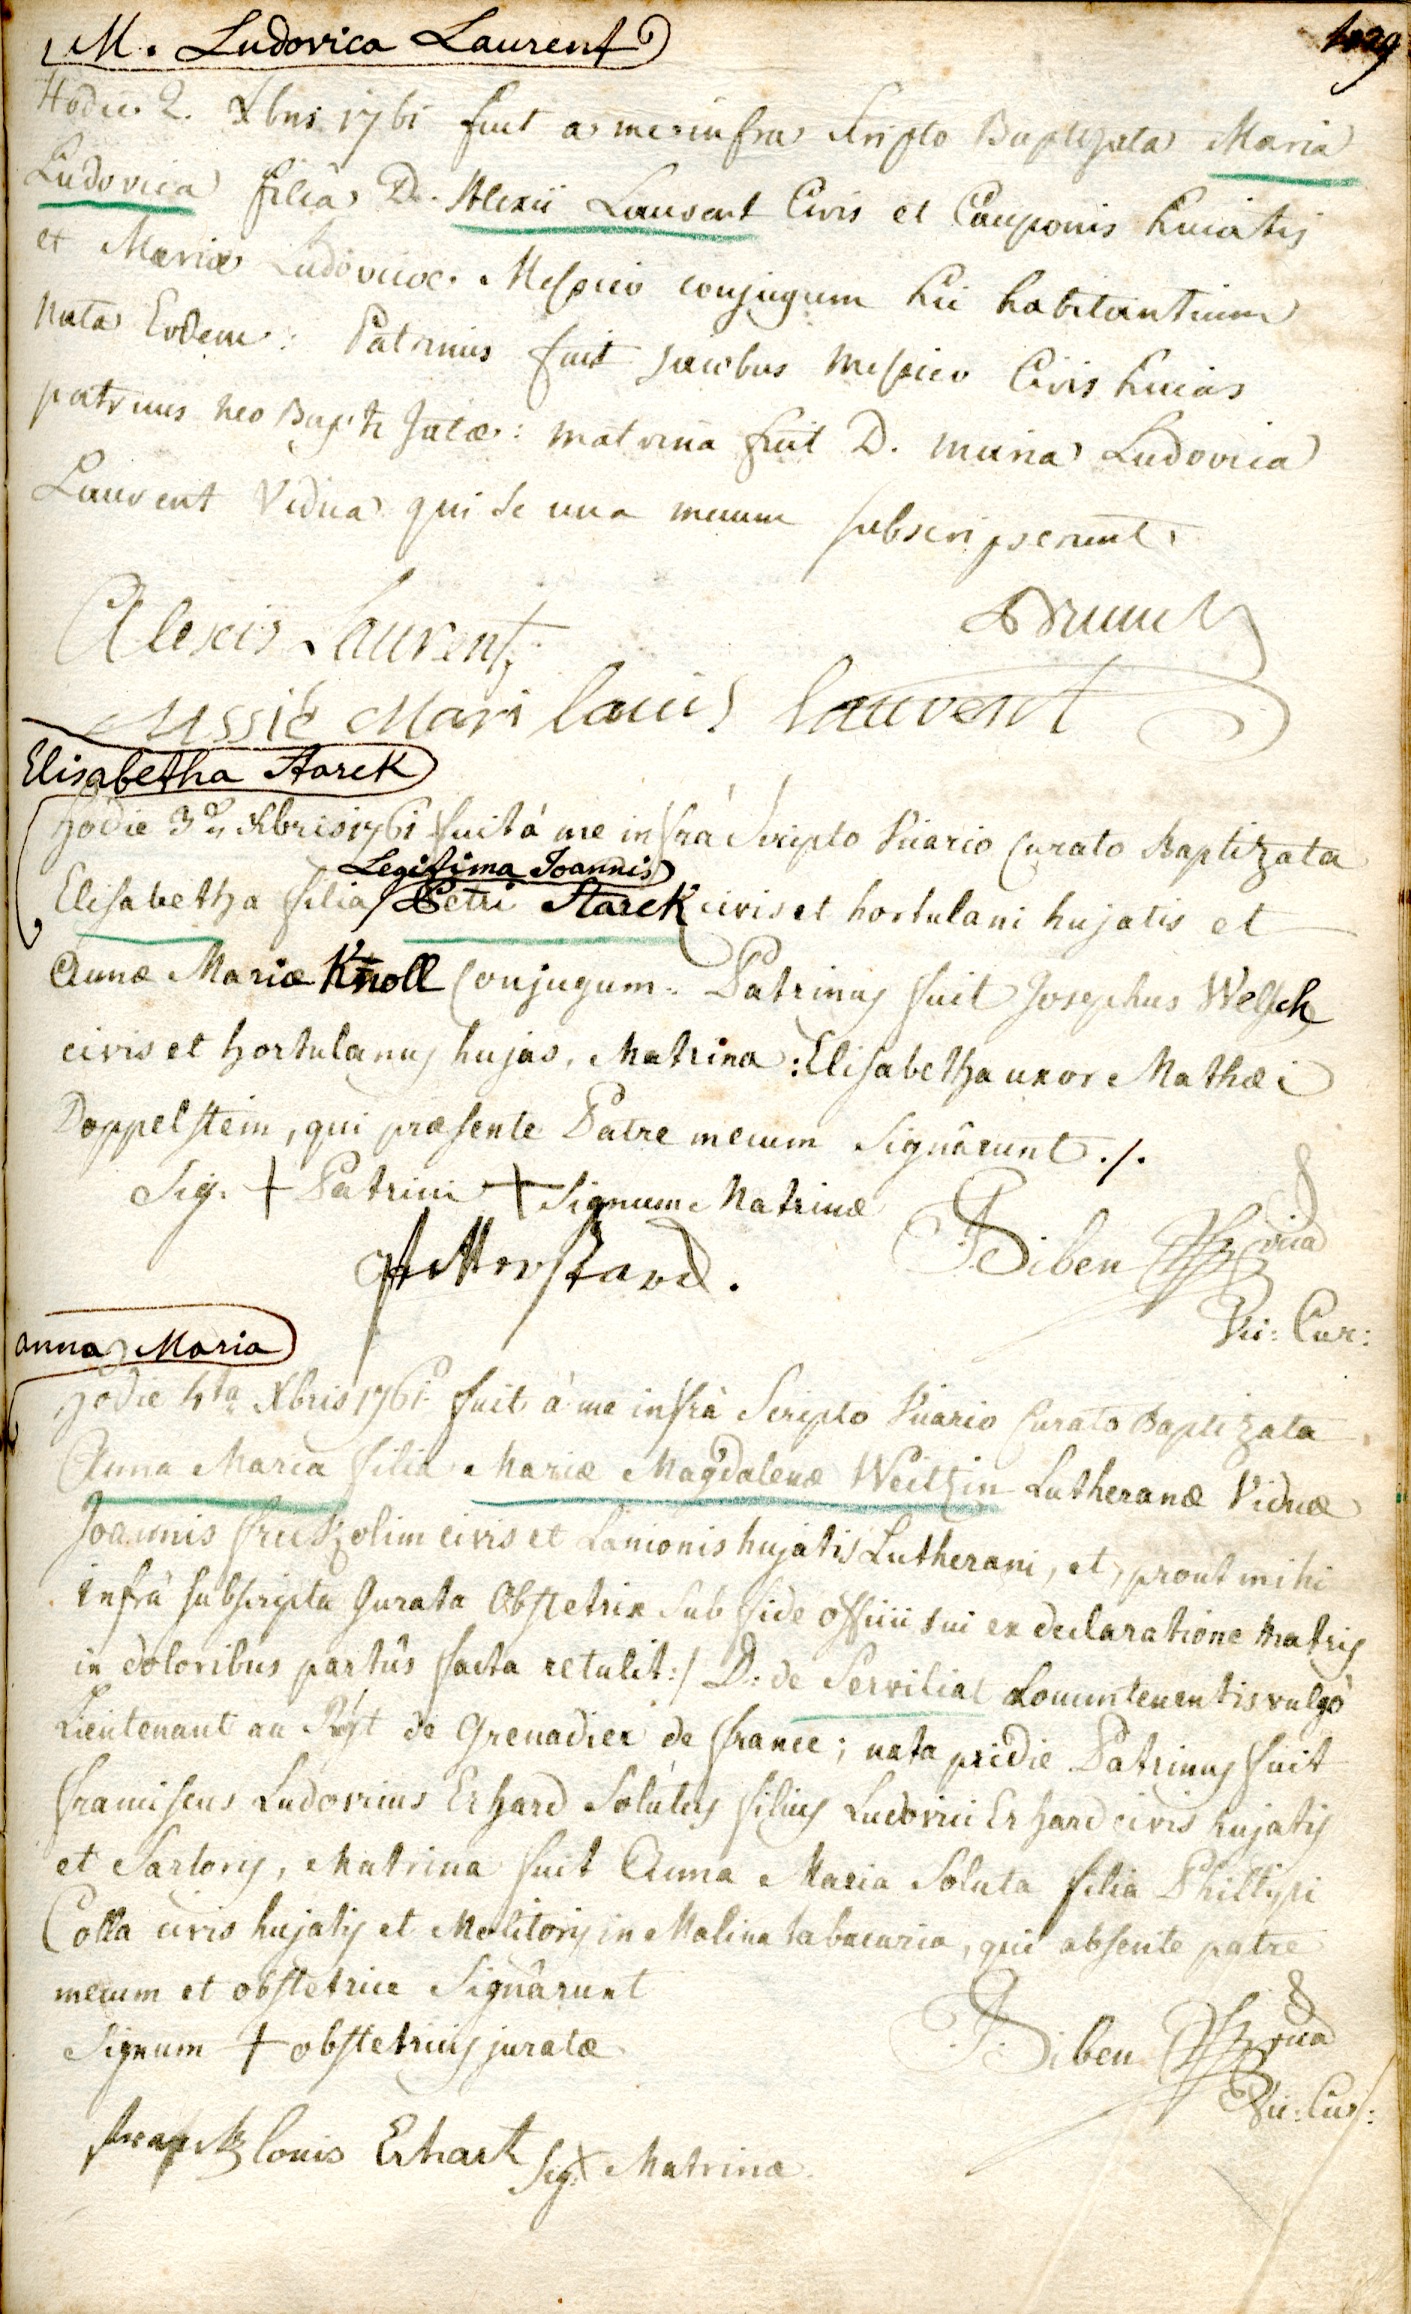 M. Ludovica Laurent
1029
Hodie 2. Xbris 1761 fuit a me infra scripto Baptizata Maria
Ludovica filia D. Alexii Laurent Civis et Cauponis huiatis
et Mariæ Ludovicæ Messieo conjugum hic habitantium
nata Eodem: Patrinus fuit Jacobus Messieo Civis huias
patruus neo Baptizatæ: matrina fuit D. maria Ludovica
Laurent Vidua qui se una mecum subscripserunt.
Alexis Laurent,
Mussié Mari louis laurent
Elisabetha Starck
hodie 3a Xbris 1761 fuit à me infrà Scripto Vicario Curato Baptizata
Legitima Joannis
Elisabetha filia Petri Starck civis et hortulani hujatis et
Annæ Mariæ Knoll Conjugum. Patrinus fuit Josephus Welsch
civis et hortulanus hujas, Matrina: Elisabetha uxor Mathæi
Doppelstein, qui præsente Patre mecum Signârunt ./.
Sig. + Patrini + Signum Matrinæ
Siben
Vic: Cur:
anna Maria
hodie 4ta Xbris 1761 fuit à me infrà Scripto Vicario Curato Baptizata
Anna Maria filia Mariæ Magdalenæ Weitzin Lutheranæ Viduæ
Joannis fritz olim civis et Lanionis hujatis Lutherani, et, prout mihi
infrà subscripta Jurata Obstetrix sub fide officii sui ex declaratione Matris
in doloribus partûs facta retulit:/ D: de Serviliat Locumtenentis vulgò
Lieutenant au Rgt de Grenadier de france; nata pridie Patrinus fuit
franciscus Ludovicus Erhard Solutus filius Ludovici Erhard civis hujatis
et Sartoris, Matrina fuit Anna Maria Soluta filia Philippi
Colla civis hujatis et Molitoris in Molina tabacaria, qui absente patre
mecum et obstetrice Signârunt
Signum + obstetricis juratæ
Siben
Vic: Cur:
frantz louis Erhart Sig. X Matrinæ